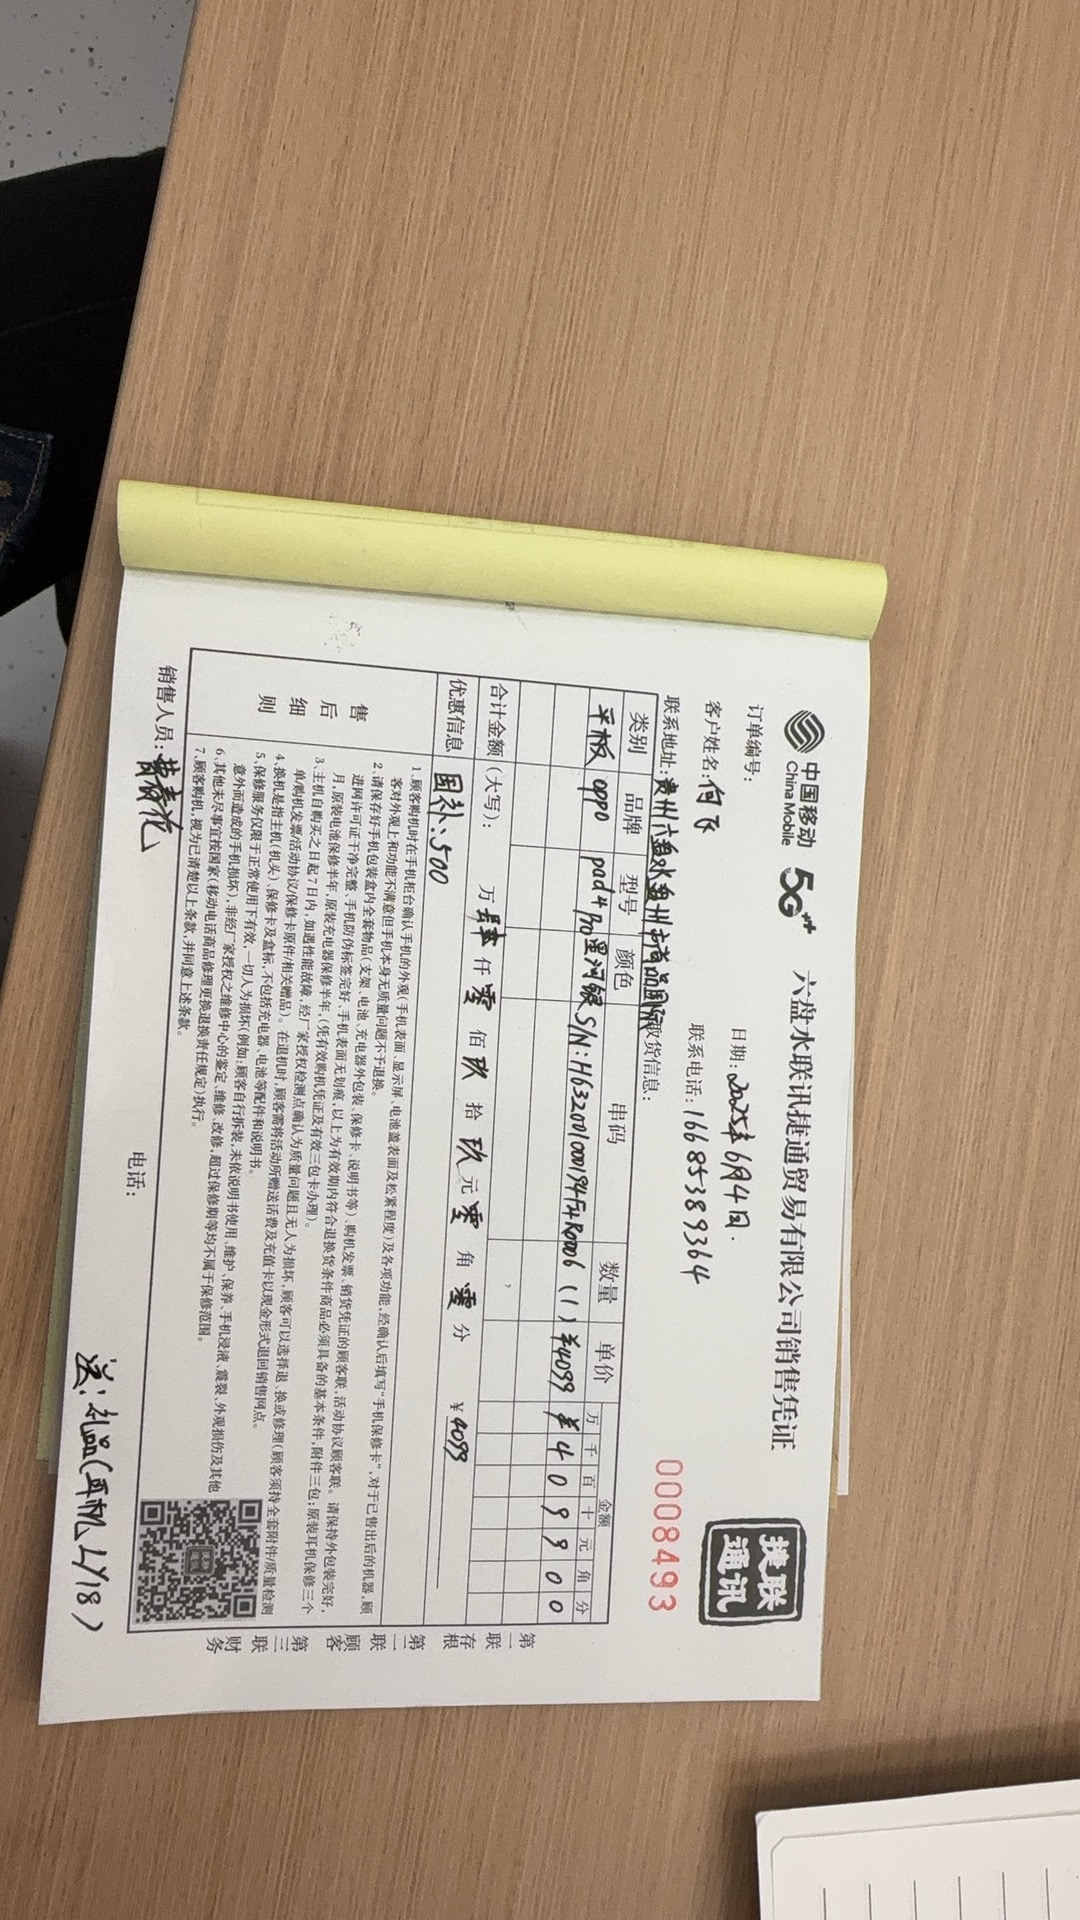 中国移动
China Mobile
5G+++
六盘水联讯捷通贸易有限公司销售凭证
捷联
通讯
订单编号:
日期:2025年6月4日.
0008493
客户姓名:何飞
联系电话:16685389364
联系地址:贵州六盘水盘州市尚品国际
收货信息:
类别 品牌 型号 颜色 串码 数量 单价 金额
万 千 百 十 元 角 分
平板 oppo pad4 Pro 星河银 S/N:H632001000194F4R0006 (1) ¥4099 ¥ 4 0 9 9 0 0
合计金额(大写): 万 肆 仟 零 佰 玖 拾 玖 元 零 角 零 分 ¥4099
优惠信息 国补:500
售后细则
1、顾客购机时在手机柜台确认手机的外观(手机表面、显示屏、电池盖表面及松紧程度)及各项功能,经确认后填写“手机保修卡”,对于已售出后的机器,顾
客对外观上和功能不满意但手机本身无质量问题不予退换。
2、请保存好手机包装盒内全套物品(支架、电池、充电器外包装、保修卡、说明书等)、购机发票、销货凭证的顾客联、活动协议顾客联。请保持外包装完好,
进网许可证干净完整、手机防伪标签完好、手机表面无划痕,以上为有效期内符合退换货条件商品必须具备的基本条件,附件三包:原装耳机保修三个
月,原装电池保修半年,原装充电器保修半年,(凭有效购机凭证及有效三包卡办理)。
3、主机自购买之日起7日内,如遇性能故障,经厂家授权检测点确认为质量问题且无人为损坏,顾客可以选择退、换或修理(顾客须持全套附件/质量检测
单/购机发票/活动协议/保修卡原件/相关赠品)。在退机时,顾客需将活动所赠送话费及充值卡以现金形式退回销售网点。
4、换机是指主机(机头)、保修卡及盒标,不包括充电器、电池等配件和说明书。
5、保修服务仅限于正常使用下有效,一切人为损坏(例如:顾客自行拆装,未依说明书使用、维护、保养、手机浸液、震裂、外观损伤及其他
意外而造成的手机损坏),非经厂家授权之维修中心的鉴定、维修、改修,超过保修期等均不属于保修范围。
6、其他未尽事宜按国家(移动电话商品修理更换退换责任规定)执行。
7、顾客购机,视为已清楚以上条款,并同意上述条款。
第一联 存根
第二联 顾客
第三联 财务
销售人员:
电话:
送:礼品(耳机、LY18)